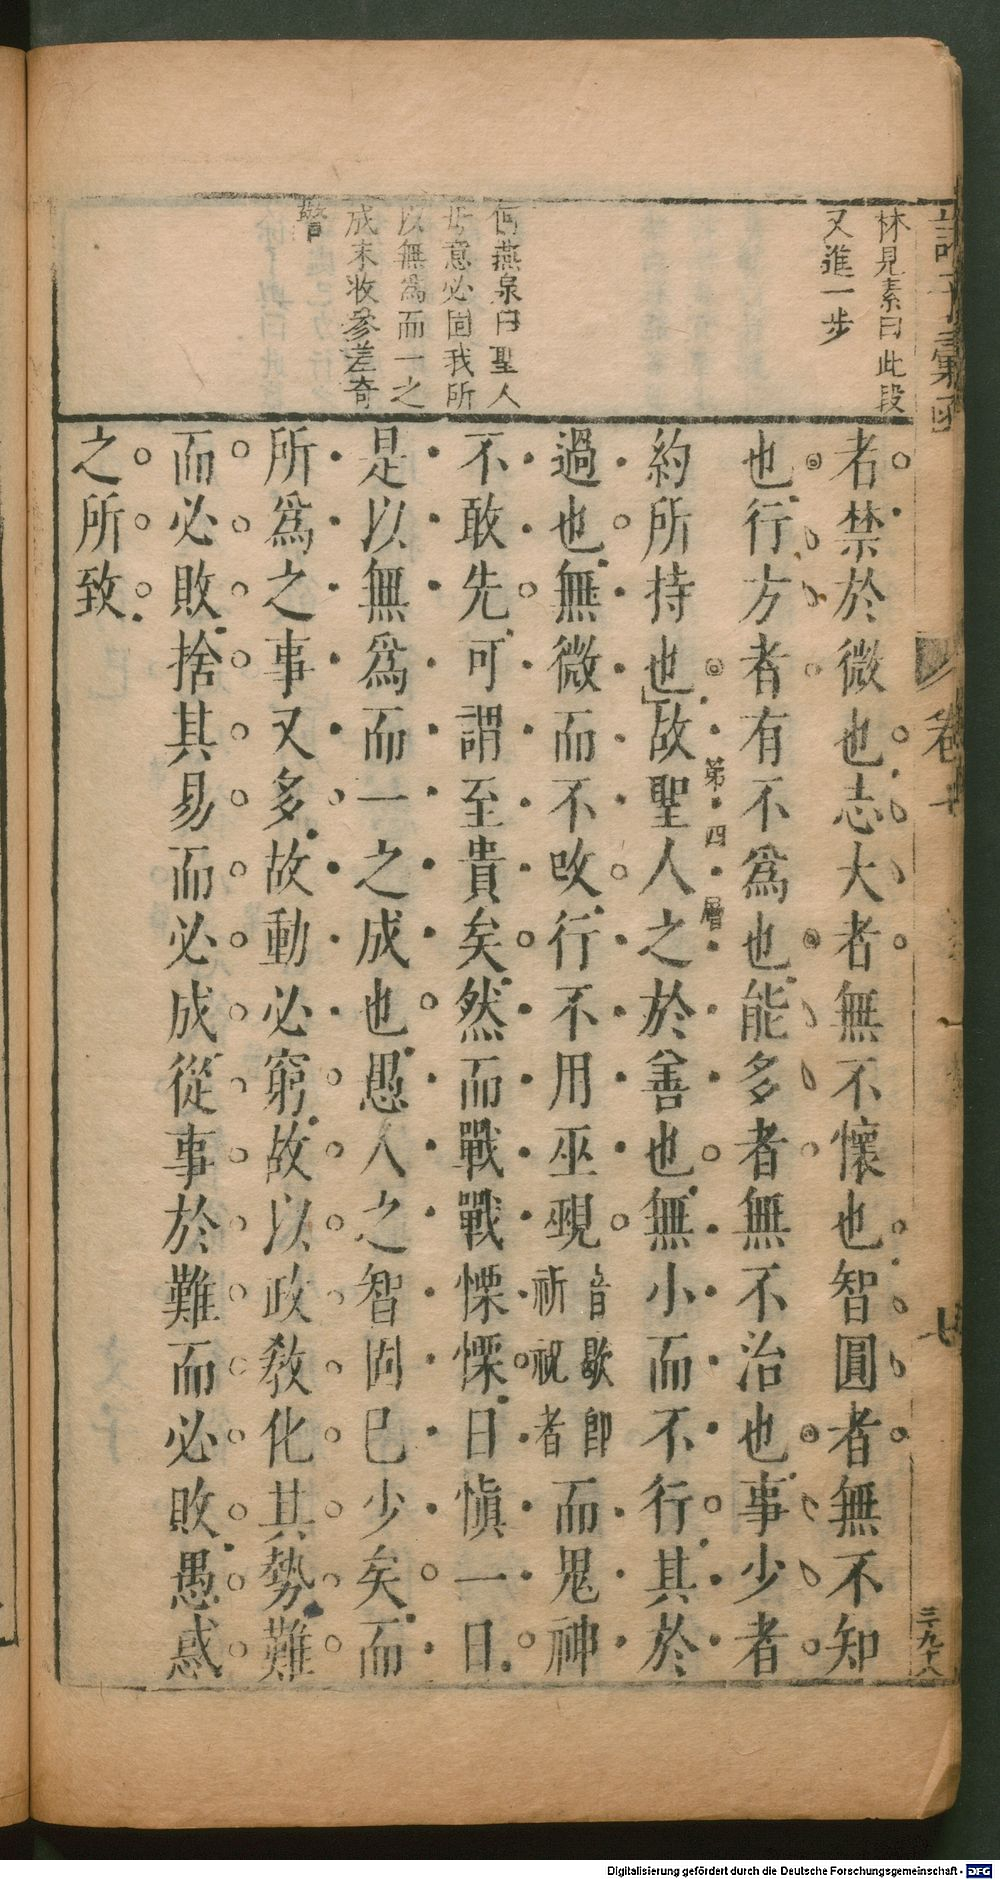 林見素曰此段
又進一步
何燕泉曰聖人
毋意必固我所
以無爲而一之
成末收參差奇
警
者禁於微也志大者無不懷也智圓者無不知
也行方者有不爲也能多者無不治也事少者
約所持也故聖人之於善也無小而不行其於
第四層
過也無微而不攺行不用巫覡音歇卽祈祝者而鬼神
不敢先可謂至貴矣然而戰戰慄慄日愼一日
是以無爲而一之成也愚人之智固已少矣而
所爲之事又多故動必窮故以政敎化其勢難
而必敗捨其易而必成從事於難而必敗愚惑
之所致
諸子彙函
卷十
三九十八
Digitalisierung gefördert durch die Deutsche Forschungsgemeinschaft - DFG